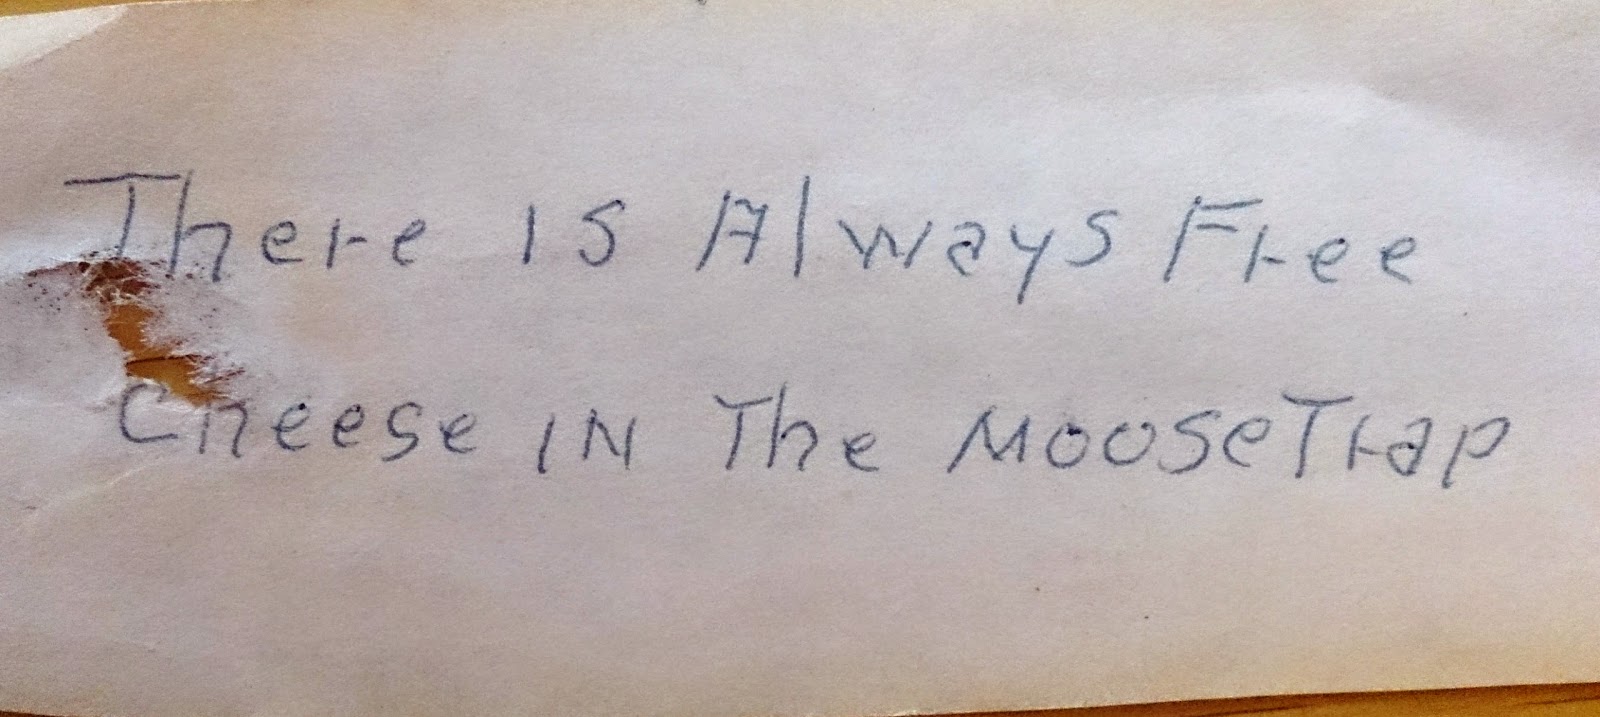 There is Always Free
Cheese IN The MooseTrap